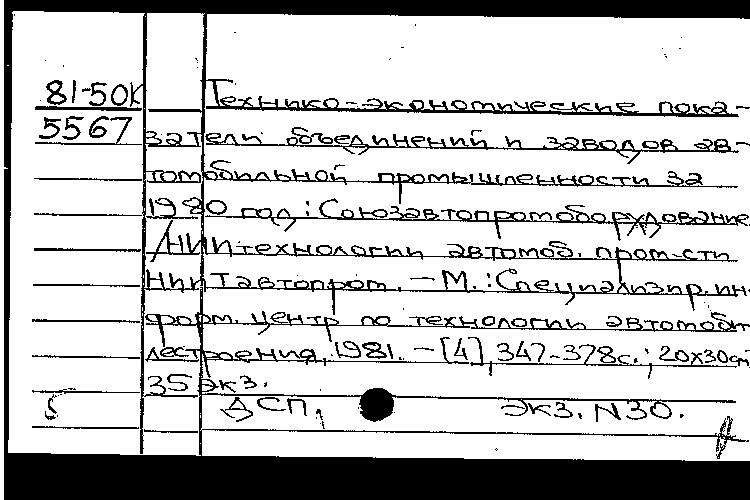 81-50К Технико-экономические пока-
5567 затели объединений и заводов ав-
томобильной промышленности за
1980 год: Союзавтопромоборудование
/НИИтехнологии автомоб. пром-сти
НИИТавтопром. – М.: Специализир. ин-
форм. центр по технологии автомоби
лестроения, 1981. – [4], 347-378с.; 20х30см
35 экз.
ДСП, экз. N30.